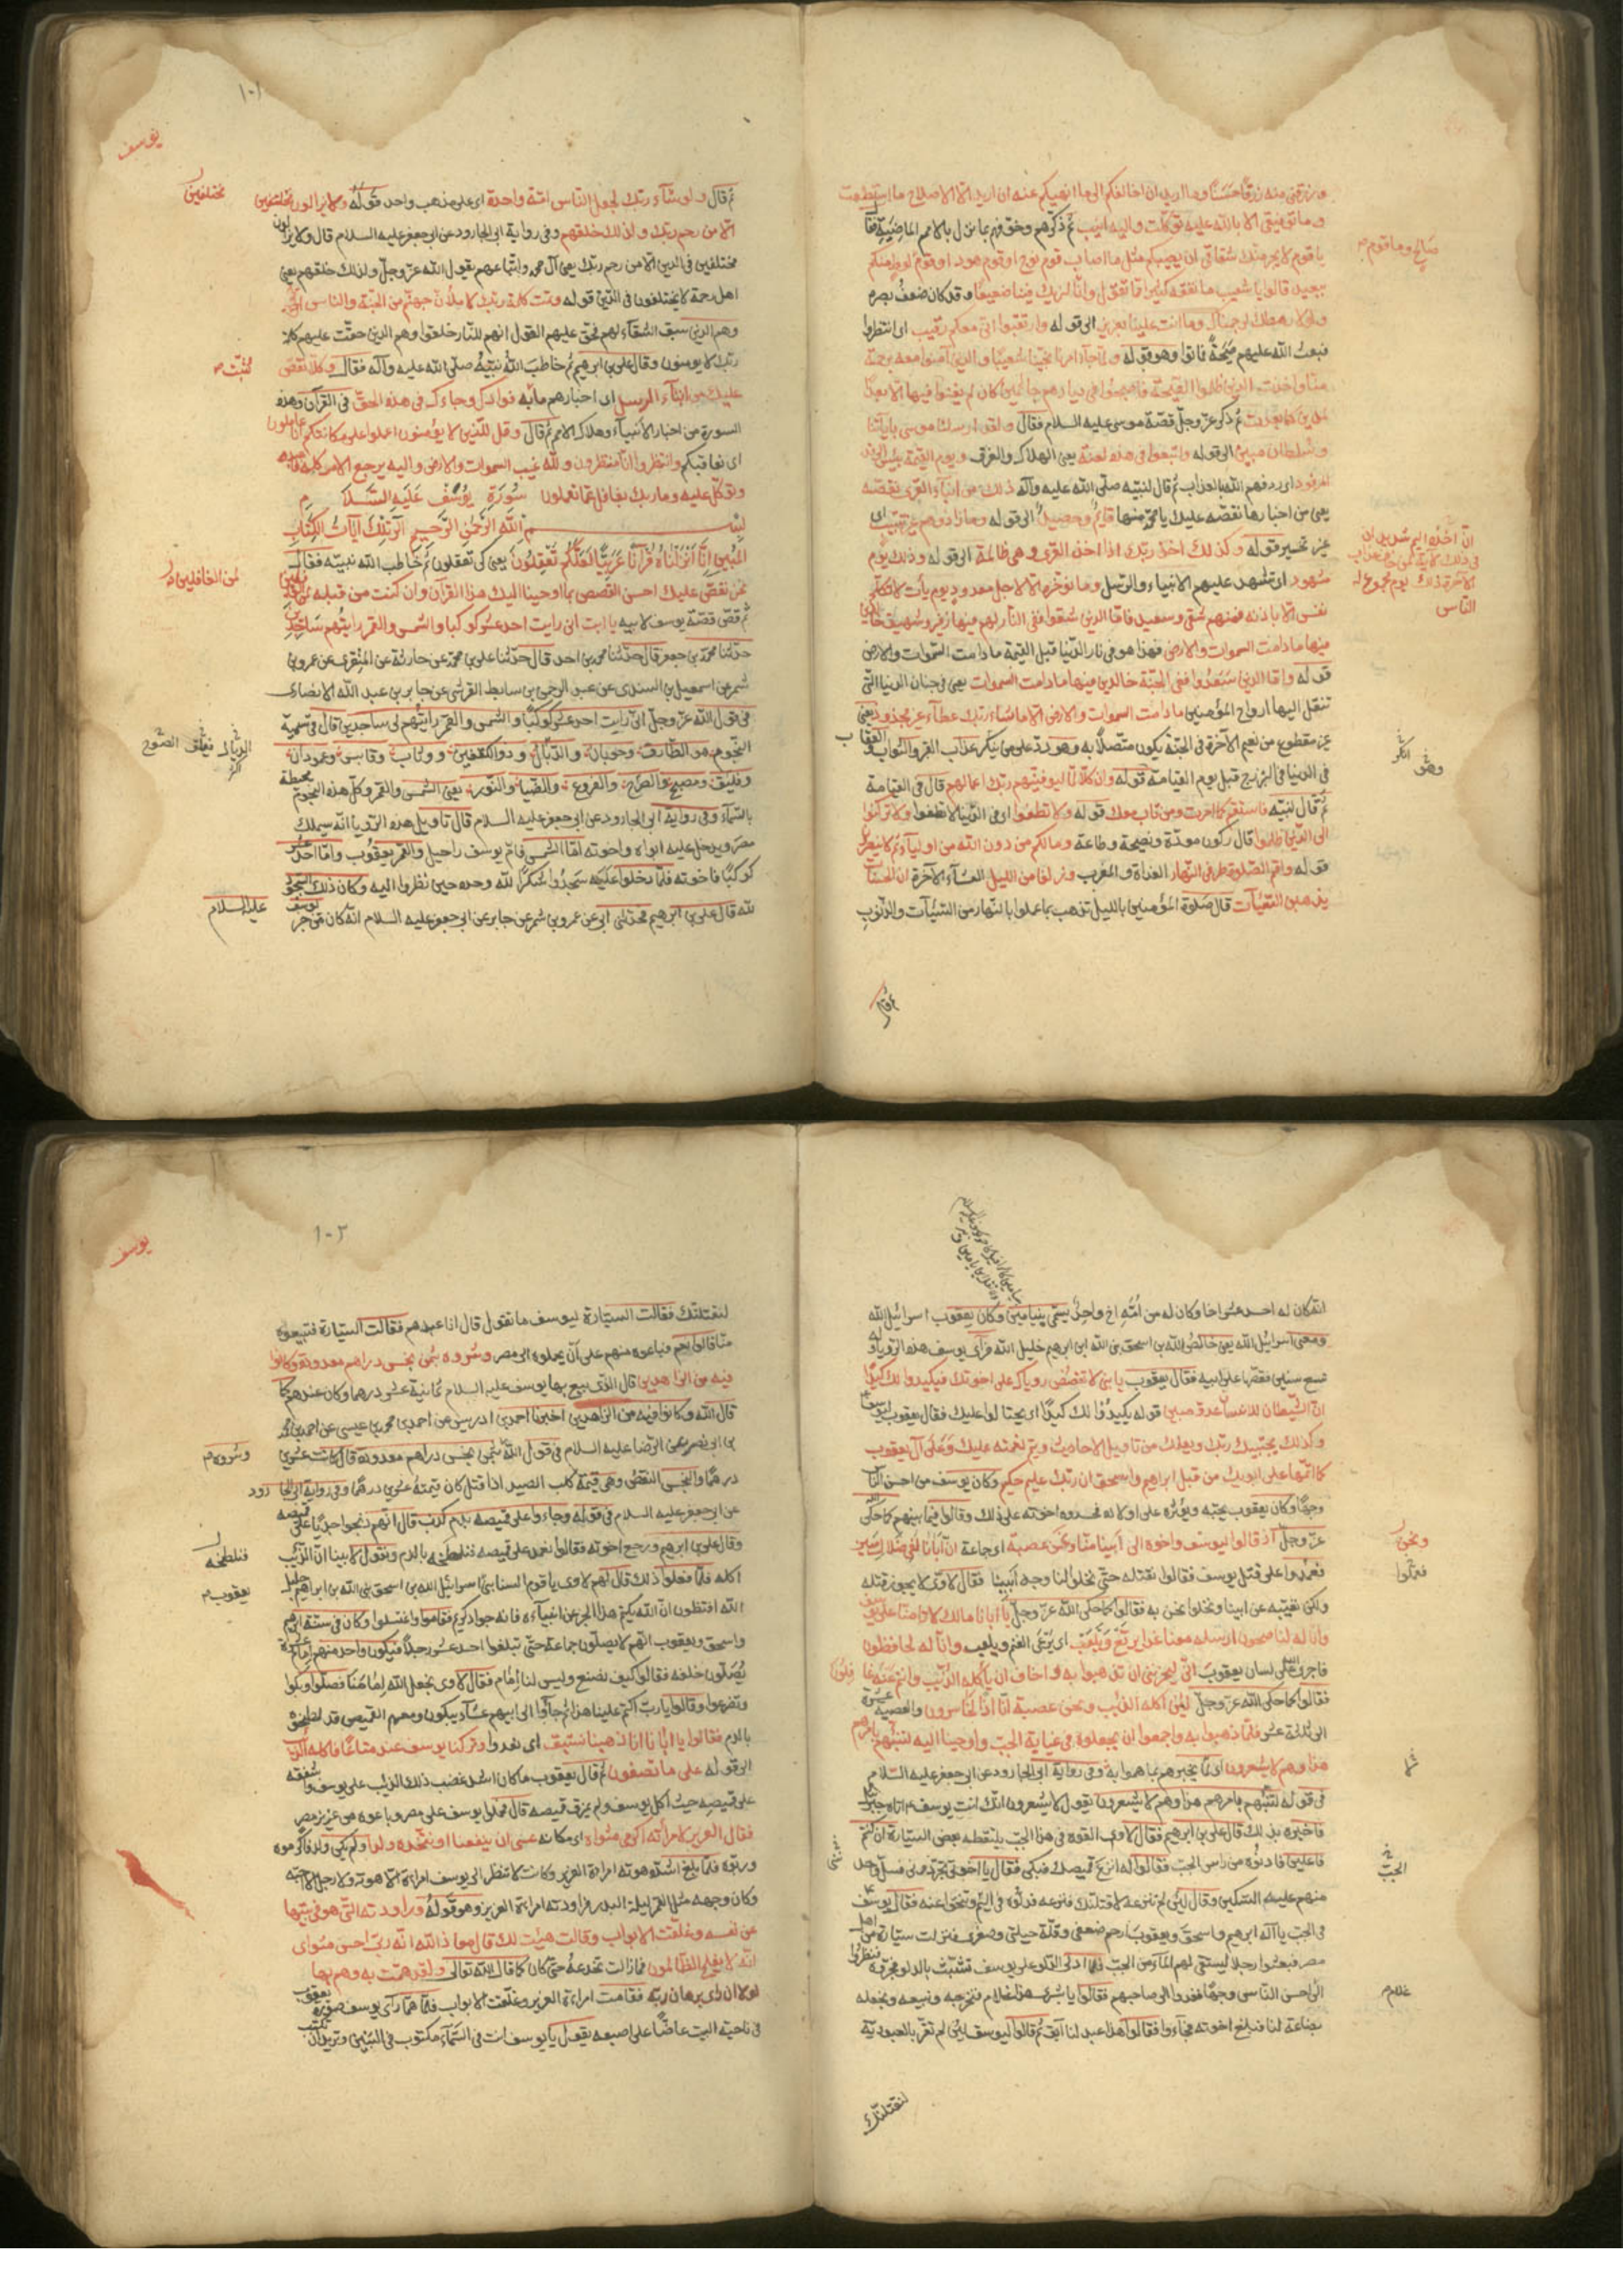 ورزقني منه رزقا حسنا وما اريد ان اخالفكم الى ما انهيكم عنه ان اريد الا الاصلاح ما استطعت
وما توفيقي الا بالله عليه توكلت واليه انيب ثم ذكرهم وخوفهم بما نزل بالامم الماضية فقال
يا قوم لا يجرمنكم شقاقي ان يصيبكم مثل ما اصاب قوم نوح او قوم هود او قوم لوط منكم
صالح وما قوم
ببعيد قالوا يا شعيب ما نفقه كثيرا مما تقول وانا لنريك فينا ضعيفا وقد كان ضعف بصره
ولولا رهطك لرجمناك وما انت علينا بعزيز الى قوله وارتقبوا اني معكم رقيب اى انتظروا
فبعث الله عليهم صيحة فماتوا وهو قوله ولما جاء امرنا نجينا شعيبا والذين آمنوا معه برحمة
منا واخذت الذين ظلموا الصيحة فاصبحوا في ديارهم جاثمين كان لم يغنوا فيها الا بعدا
لمدين كما بعدت ثم ذكر عز وجل قصة موسى عليه السلام فقال ولقد ارسلنا موسى بآياتنا
وسلطان مبين الى قوله واتبعوا في هذه لعنة يعني الهلاك والغرق ويوم القيمة بئس الرفد
المرفود اى رفدهم الله بالعذاب ثم قال لنبيه صلى الله عليه وآله ذلك من انباء القرى نقصه
يعني من اخبارها نقصه عليك يا محمد منها قائم وحصيد الى قوله وما زادوهم غير تتبيب اى
غير تخسير قوله وكذلك اخذ ربك اذا اخذ القرى وهى ظالمة الى قوله وذلك يوم
ان اخذه اليم شديد ان
في ذلك لآية لمن خاف عذاب
الآخرة ذلك يوم مجموع له
الناس
مشهود اى تشهد عليهم الانبياء والرسل وما نؤخره الا لاجل معدود يوم يأت لا تكلم
نفس الا باذنه فمنهم شقي وسعيد فاما الذين شقوا ففى النار لهم فيها زفير وشهيق خالدين
فيها ما دامت السموات والارض فهذا هو في نار الدنيا قبل القيمة ما دامت السموات والارض
قوله واما الذين سعدوا ففى الجنة خالدين فيها ما دامت السموات يعنى في جنان الدنيا التي
تنقل اليها ارواح المؤمنين ما دامت السموات والارض الا ما شاء ربك عطاء غير مجذوذ يعني
غير مقطوع من نعيم الآخرة في الجنة يكون متصلا به وهو رد على من ينكر عذاب القبر والثواب والعقاب
في الدنيا في البرزخ قبل يوم القيامة قوله وان كلا لما ليوفينهم ربك اعمالهم قال في القيامة
ثم قال لنبيه فاستقم كما امرت ومن تاب معك قوله ولا تطغوا اى في الدنيا لا تطغوا ولا تركنوا
الى الذين ظلموا قال ركون مودة ونصيحة وطاعة وما لكم من دون الله من اولياء ثم لا تنصرون
قوله واقم الصلوة طرفى النهار الغداة والمغرب وزلفا من الليل العشاء الآخرة ان الحسنات
يذهبن السيئات قال صلوة المؤمنين بالليل تذهب بما عملوا بالنهار من السيئات والذنوب
ثم قال
١٠١
يوسف
ثم قال ولو شاء ربك لجعل الناس امة واحدة اى على مذهب واحد قوله ولا يزالون مختلفين
مختلفين
الا من رحم ربك ولذلك خلقهم وفى رواية ابى الجارود عن ابى جعفر عليه السلام قال ولا يزالون
مختلفين في الدين الا من رحم ربك يعنى آل محمد واتباعهم يقول الله عز وجل ولذلك خلقهم يعني
اهل رحمة لا يختلفون في الدين قوله وتمت كلمة ربك لاملان جهنم من الجنة والناس اجمعين
وهم الذين سبق الشقاء لهم فحق عليهم القول انهم للنار خلقوا وهم الذين حقت عليهم كلمة
ربك لا يؤمنون وقال على بن ابرهيم ثم خاطب الله نبيه صلى الله عليه وآله فقال وكلا نقص
نثبت
عليك من انباء الرسل اى اخبارهم ما به فؤادك وجاءك في هذه الحق في القرآن وهذه
السورة من اخبار الانبياء وهلاك الامم ثم قال وقل للذين لا يؤمنون اعملوا على مكانتكم انا عاملون
اى نعاقبكم وانتظروا انا منتظرون ولله غيب السموات والارض واليه يرجع الامر كله فاعبده
وتوكل عليه وما ربك بغافل عما تعملون سورة يوسف عليه السلام
بسم الله الرحمن الرحيم الر تلك آيات الكتاب
المبين انا انزلناه قرآنا عربيا لعلكم تعقلون يعني كى تعقلون ثم خاطب الله نبيه فقال
لمن الغافلين
نحن نقص عليك احسن القصص بما اوحينا اليك هذا القرآن وان كنت من قبله
ثم قص قصة يوسف لابيه يا ابت انى رايت احد عشر كوكبا والشمس والقمر رايتهم لى ساجدين
حدثنا محمد بن جعفر قال حدثنا محمد بن احمد قال حدثنا على بن محمد عن حارثة عن المنقرى عن عمرو بن
شمر عن اسمعيل بن السندى عن عبد الرحمن بن سابط القرشى عن جابر بن عبد الله الانصارى
في قول الله عز وجل انى رايت احد عشر كوكبا والشمس والقمر رايتهم لى ساجدين قال في تسمية
النجوم هو الطارق وحوبان والذبال وذو الكتفين ووثاب وقابس وعمودان
وفليق ومصبح والصرح والفروغ والضياء والنور يعنى الشمس والقمر وكل هذه النجوم محيطة
بالسماء وفى رواية ابى الجارود عن ابى جعفر عليه السلام قال تأويل هذه الرؤيا انه سيملك
مصر ويدخل عليه ابواه واخوته اما الشمس فام يوسف راحيل والقمر يعقوب واما احد عشر
كوكبا فاخوته فلما دخلوا عليه سجدوا شكرا لله وحده حين نظروا اليه وكان ذلك السجود
لله قال على بن ابرهيم فحدثنى ابى عن عمرو بن شمر عن جابر عن ابى جعفر عليه السلام انه كان من خبر يوسف
عليه السلام
انه كان له احد عشر اخا وكان له من امه اخ واحد يسمى بنيامين وكان يعقوب اسرائيل الله
ومعنى اسرائيل الله يعنى خالص الله بن اسحق نبى الله ابن ابرهيم خليل الله فرأى يوسف هذه الرؤيا وله
تسع سنين فقصها على ابيه فقال يعقوب يا بنى لا تقصص رؤياك على اخوتك فيكيدوا لك كيدا
ان الشيطان للانسان عدو مبين قوله يكيدوا لك كيدا اى يحتالوا عليك فقال يعقوب ليوسف
وكذلك يجتبيك ربك ويعلمك من تاويل الاحاديث ويتم نعمته عليك وعلى آل يعقوب
كما اتمها على ابويك من قبل ابراهيم واسحق ان ربك عليم حكيم وكان يوسف من احسن الناس
وجها وكان يعقوب يحبه ويؤثره على اولاده فحسدوه اخوته على ذلك وقالوا فيما بينهم كما حكى الله
عز وجل اذ قالوا ليوسف واخوه احب الى ابينا منا ونحن عصبة اى جماعة ان ابانا لفى ضلال مبين
ونحن
فعمدوا على قتل يوسف فقالوا نقتله حتى يخلو لنا وجه ابينا فقال لاوى لا يجوز قتله
فعملوا
ولكن نغيبه عن ابينا ونخلوا نحن به فقالوا كما حكى الله عز وجل يا ابانا مالك لا تامنا على يوسف
وانا له لناصحون ارسله معنا غدا يرتع ويلعب اى يرعى الغنم ويلعب وانا له لحافظون
فاجرى الله على لسان يعقوب انى ليحزننى ان تذهبوا به واخاف ان ياكله الذئب وانتم عنه غافلون
فقالوا كما حكى الله عز وجل لئن اكله الذئب ونحن عصبة انا اذا لخاسرون والعصبة عشرة
الى ثلثة عشر فلما ذهبوا به واجمعوا ان يجعلوه في غيابة الجب واوحينا اليه لتنبئنهم بامرهم
هذا وهم لا يشعرون اى تخبرهم بما هموا به وفى رواية ابى الجارود عن ابى جعفر عليه السلام
في قوله لتنبئنهم بامرهم هذا وهم لا يشعرون يقول لا يشعرون انك انت يوسف اتاه جبرئيل
فاخبره بذلك قال على بن ابرهيم فقال لاوى القوه في هذا الجب يلتقطه بعض السيارة ان كنتم
فاعلين فادنوه من راس الجب فقالوا له انزع قميصك فبكى فقال يا اخوتى تجردونى فسل واحد
الجب
منهم عليه السكين وقال لئن لم تنزعه لاقتلنك فنزعه فدلوه في اليم وتنحوا عنه فقال يوسف
في الجب يا آله ابرهيم واسحق ويعقوب ارحم ضعفى وقلة حيلتى وصغرى فنزلت سيارة من اهل
مصر فبعثوا رجلا ليستقى لهم الماء من الجب فلما ادلى الدلو على يوسف تشبث بالدلو فجره فنظروا
الى احسن الناس وجها فعدوا الى صاحبهم فقالوا يا بشرى هذا غلام فنخرجه ونبيعه ونجعله
غلام
بضاعة لنا فبلغ اخوته فجاءوا فقالوا هذا عبد لنا آبق ثم قالوا ليوسف لئن لم تقر بالعبودية
لنقتلنك
١٠٢
يوسف
لنقتلنك فقالت السيارة ليوسف ما تقول قال انا عبدهم فقالت السيارة فتبيعوه
منا قالوا نعم فباعوه منهم على ان يحملوه الى مصر وشروه بثمن بخس دراهم معدودة وكانوا
فيه من الزاهدين قال الذى بيع بها يوسف عليه السلام ثمانية عشر درهما وكان عندهم كما
قال الله وكانوا فيه من الزاهدين اخبرنا احمد بن ادريس عن احمد بن محمد بن عيسى عن احمد بن محمد
بن ابى نصر عن الرضا عليه السلام في قول الله بثمن بخس دراهم معدودة قال كانت عشرين
وشروه
درهما والبخس النقص وهى قيمة كلب الصيد اذا قتل كان قيمته عشرين درهما وفى رواية ابى الجارود
عن ابى جعفر عليه السلام في قوله وجاءوا على قميصه بدم كذب قال انهم ذبحوا جديا على قميصه
وقال على بن ابرهيم ورجع اخوته فقالوا نعمد على قميصه فنلطخه بالدم ونقول لابينا ان الذئب
فنلطخه
اكله فلما فعلوا ذلك قال لهم لاوى يا قوم السنا بنى اسرائيل الله بن اسحق نبى الله بن ابراهيم خليل
يعقوب
الله افتظنون ان الله يكتم هذا الخبر عن انبياءه فانه جواد كريم فقاموا واغتسلوا وكان في سنة ابرهيم
واسحق ويعقوب انهم لا يصلون جماعة حتى تبلغوا احد عشر رجلا فيكون واحد منهم امام وعشرة
يصلون خلفه فقالوا كيف نصنع وليس لنا امام فقال لاوى نجعل الله امامنا فصلوا وبكوا
وتضرعوا وقالوا يا رب اكتم علينا هذا ثم جاؤا الى ابيهم عشاء يبكون ومعهم القميص قد لطخوه
بالدم فقالوا يا ابانا انا ذهبنا نستبق اى نعدوا وتركنا يوسف عند متاعنا فاكله الذئب
الى قوله على ما تصفون ثم قال يعقوب ما كان اشد غضب ذلك الذئب على يوسف واشفقه
على قميصه حيث اكل يوسف ولم يمزق قميصه قال فحملوا يوسف على مصر وباعوه من عزيز مصر
فقال العزيز لامرأته اكرمى مثواه اى مكانه عسى ان ينفعنا او نتخذه ولدا ولم يكن له ولد فاكرموه
وربوه فلما بلغ اشده هوته امراءة العزيز وكانت لا تنظر الى يوسف امراءة الا هوته ولا رجل الا احبه
وكان وجهه مثل القمر ليلة البدر فراودته امراءة العزيز وهو قوله وراودته التى هو في بيتها
عن نفسه وغلقت الابواب وقالت هيت لك قال معاذ الله انه ربى احسن مثواى
انه لا يفلح الظالمون فمازالت تخدعه حتى كان كما قال الله تعالى ولقد همت به وهم بها
لولا ان راى برهان ربه فقامت امراءة العزيز وغلقت الابواب فلما هما راى يوسف صورة يعقوب
في ناحية البيت عاضا على اصبعه يقول يا يوسف انت في السماء مكتوب في النبيين وتريد ان تكتب